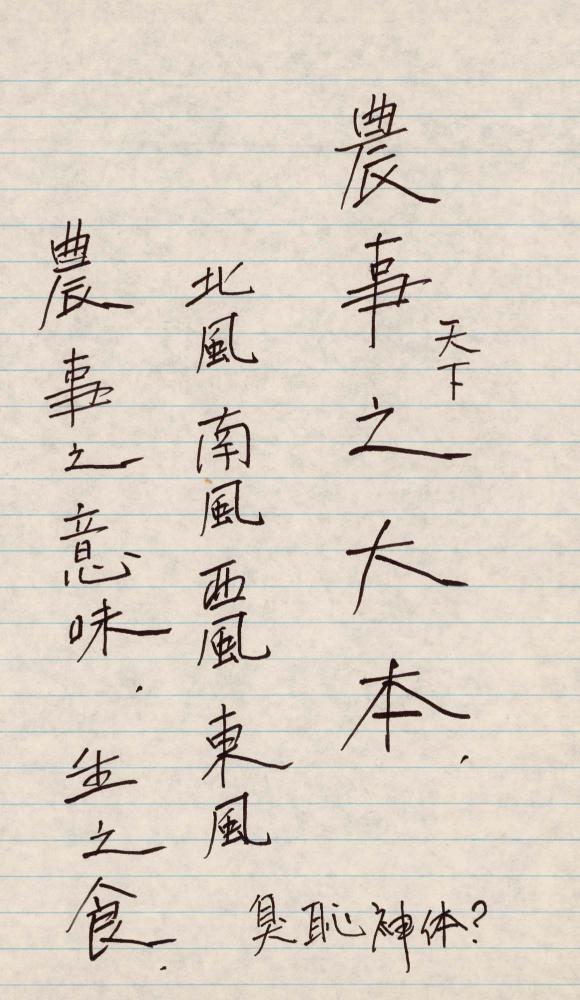 農事之大本.
天下
北風南風西風東風
農事之意味.生之食.
臭恥神体?